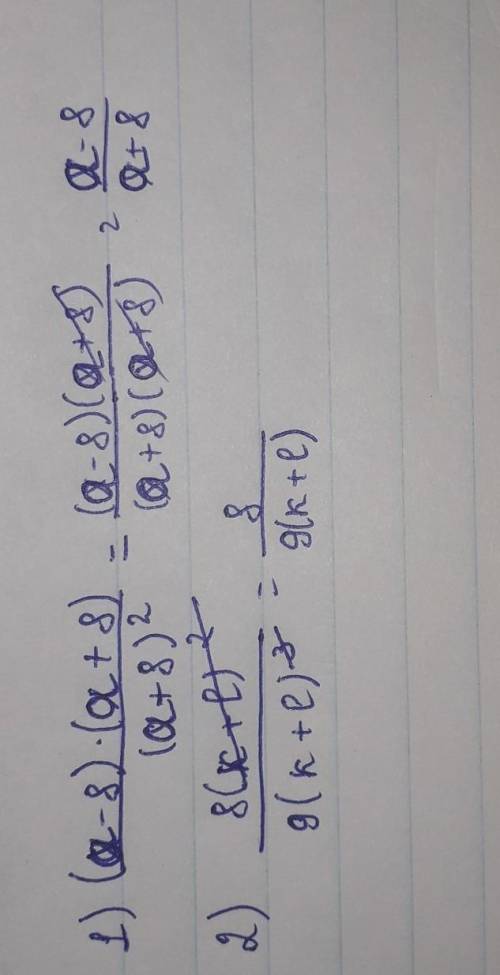 1) (a-8)·(a+8) / (a+8)² = (a-8)(a+8) / (a+8)(a+8) = a-8 / a+8
2) 8(к+l)² / 9(к+l)³ = 8 / 9(к+l)